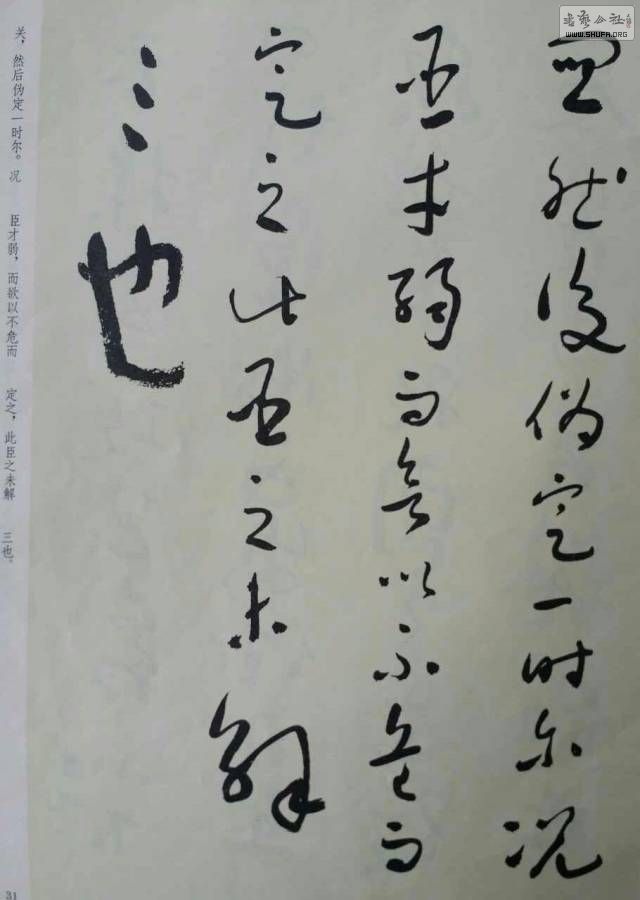 关然后伪定一时尔况
臣才弱而欲以不危而
定之此臣之未解
三也
关，然后伪定一时尔。况
臣才弱，而欲以不危而
定之，此臣之未解
三也。
31
书艺公社
WWW.SHUFA.ORG